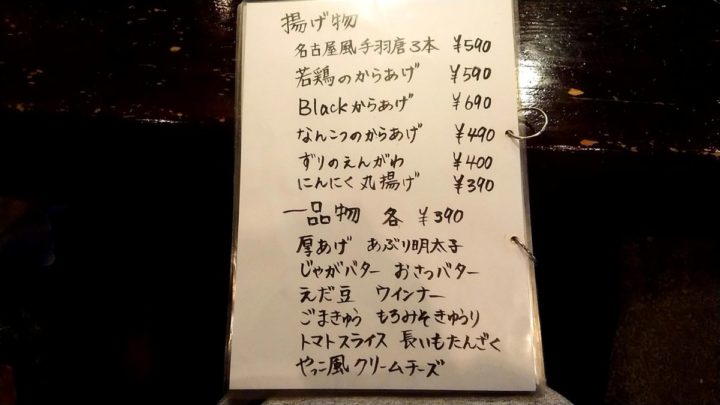 揚げ物
名古屋風手羽唐3本 ¥590
若鶏のからあげ ¥590
Blackからあげ ¥690
なんこつのからあげ ¥490
ずりのえんがわ ¥400
にんにく丸揚げ ¥390
一品物 各 ¥390
厚あげ あぶり明太子
じゃがバター おさつバター
えだ豆 ウインナー
ごまきゅう もろみそきゅうり
トマトスライス 長いもたんざく
やっこ風クリームチーズ